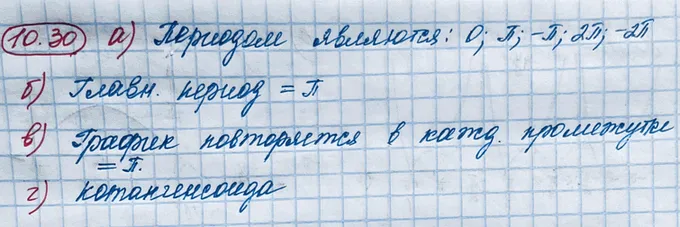 10.30 а) Периодом являются: 0; π; -π; 2π; -2π
б) Главн. период = π
в) График повторяется в кажд. промежутке
= π.
г) котангенсоида